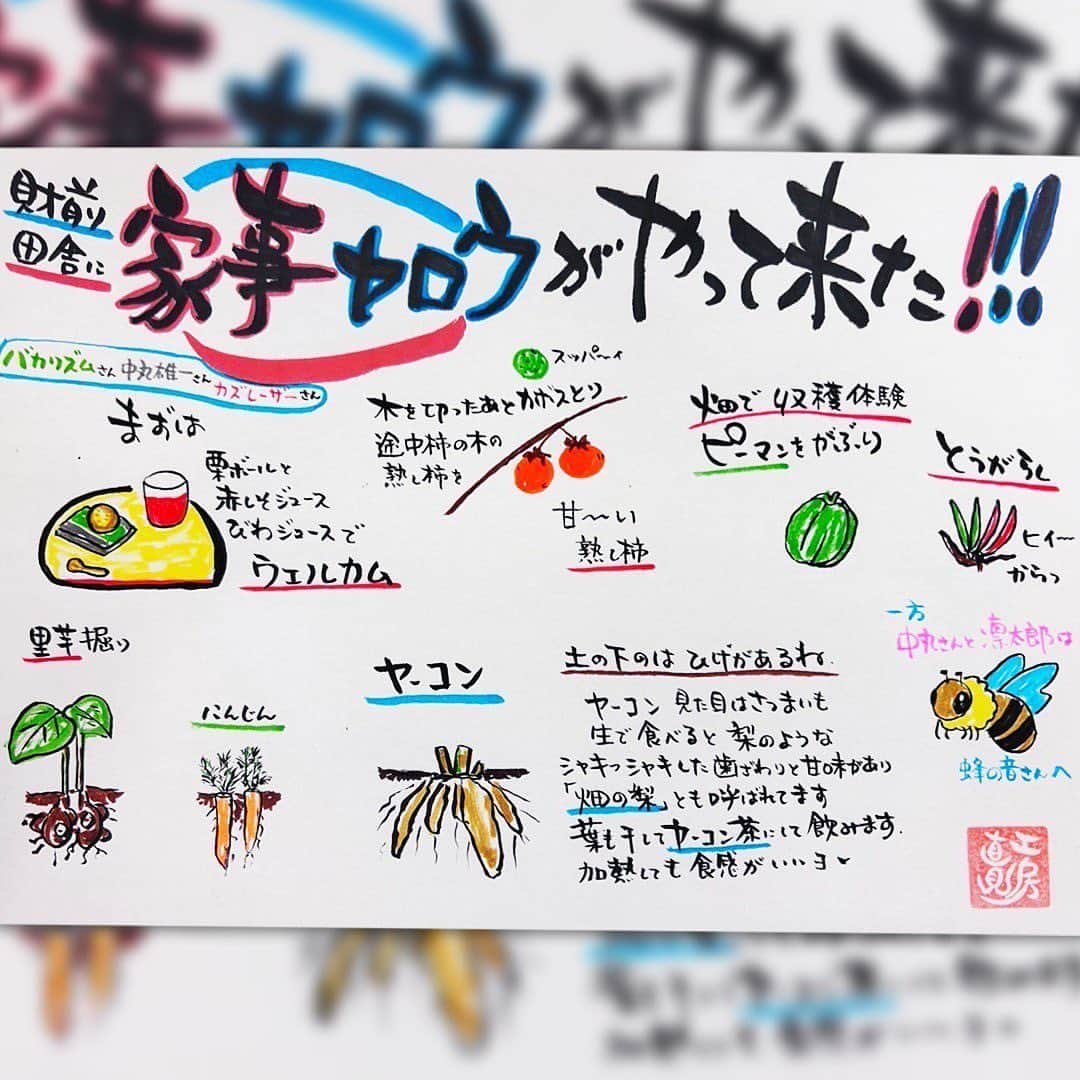 財前り
田舎に
家事ヤロウがやって来た!!!
バカリズムさん 中丸雄一さん カズレーザーさん
まずは
栗ボールと
赤しそジュース
びわジュースで
ウェルカム
スッパーイ
木を切ったあとカボスとり
途中柿の木の
熟し柿を
甘〜い
熟し柿
畑で収穫体験
ピーマンをがぶり
とうがらし
ヒィ〜
からっ
里芋掘り
にんじん
ヤーコン
土の下のは ひげがあるね.
ヤーコン 見た目はさつまいも
生で食べると 梨のような
シャキッシャキした歯ざわりと甘味があり
「畑の梨」とも呼ばれてます
葉も干してヤーコン茶にして飲みます.
加熱しても 食感がいいヨ
一方
中丸さんと凛太郎は
蜂の音さんへ
工房
直見